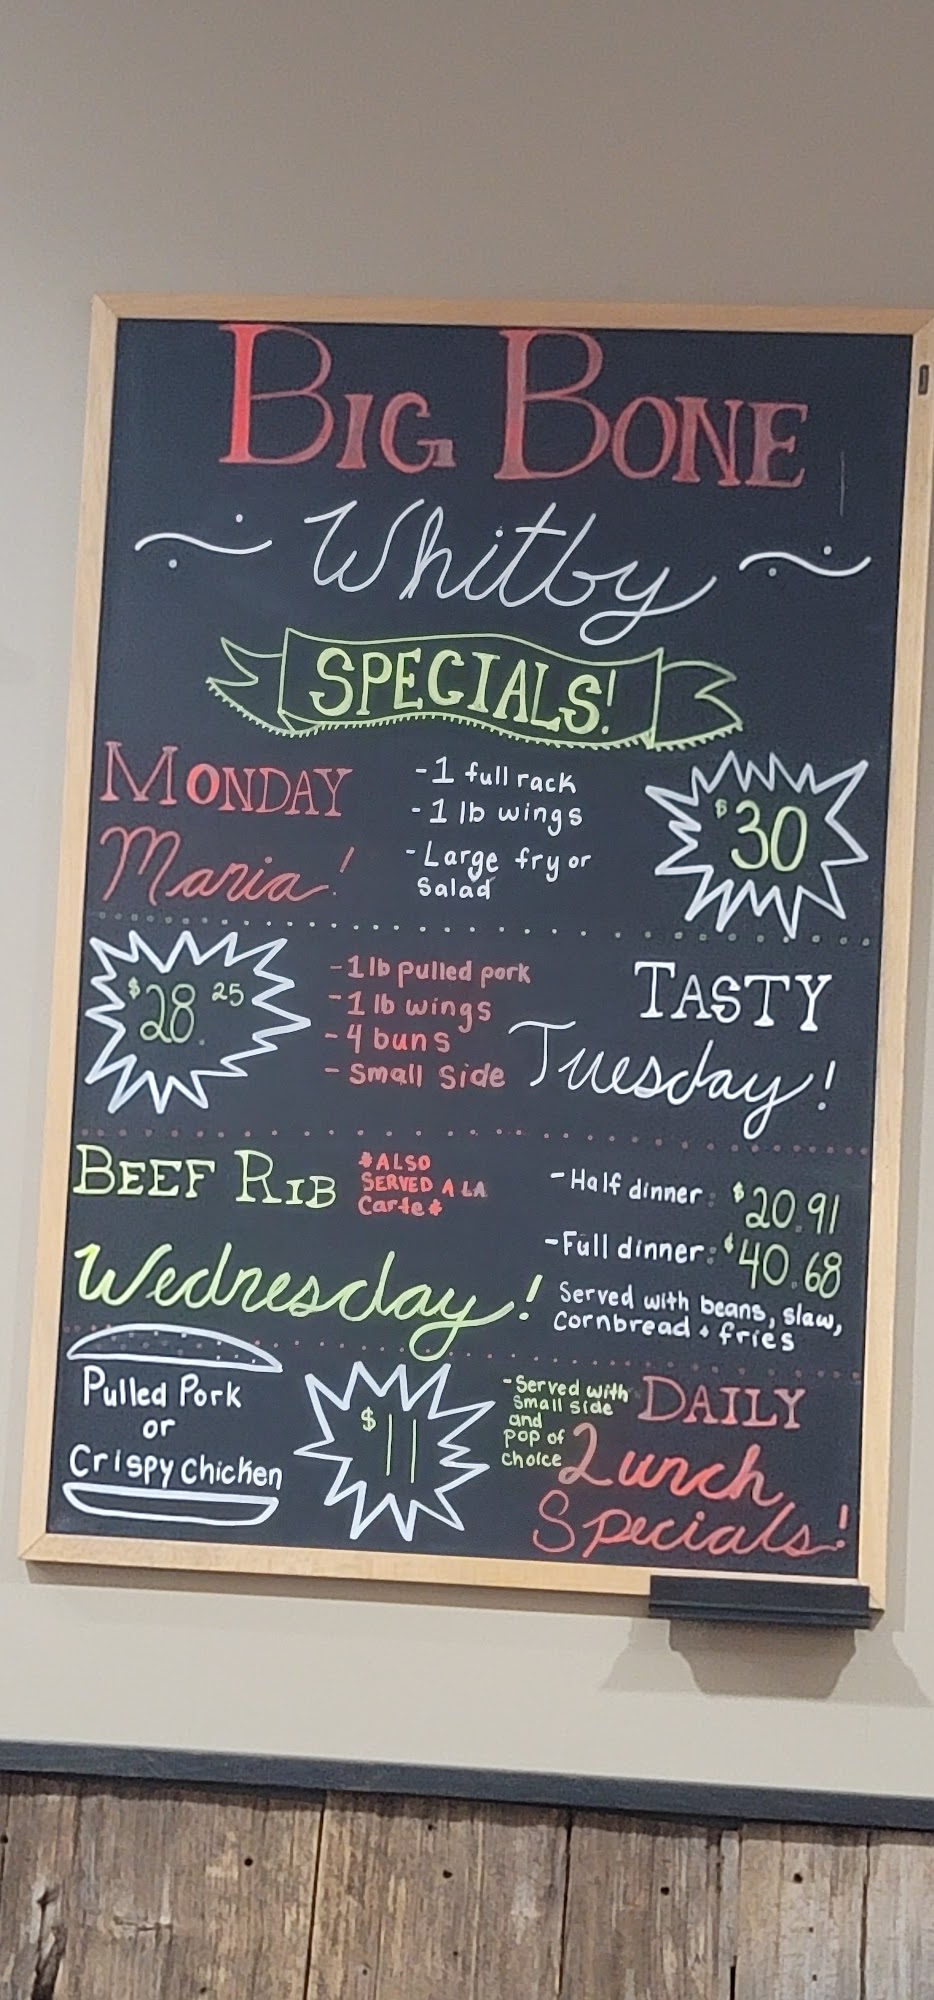 BIG BONE
Whitby
SPECIALS!
MONDAY
Mania!
-1 full rack
-1 lb wings
-Large fry or
salad
$30
$28.25
-1 lb pulled pork
-1 lb wings
-4 buns
-Small Side
TASTY
Tuesday!
BEEF RIB
*ALSO
SERVED A LA
Carte*
Wednesday!
-Half dinner: $20.91
-Full dinner: $40.68
Served with beans, slaw,
Cornbread + fries
Pulled Pork
or
Crispy Chicken
$11
-Served with
Small side
and
POP of
choice
DAILY
Lunch
Specials!